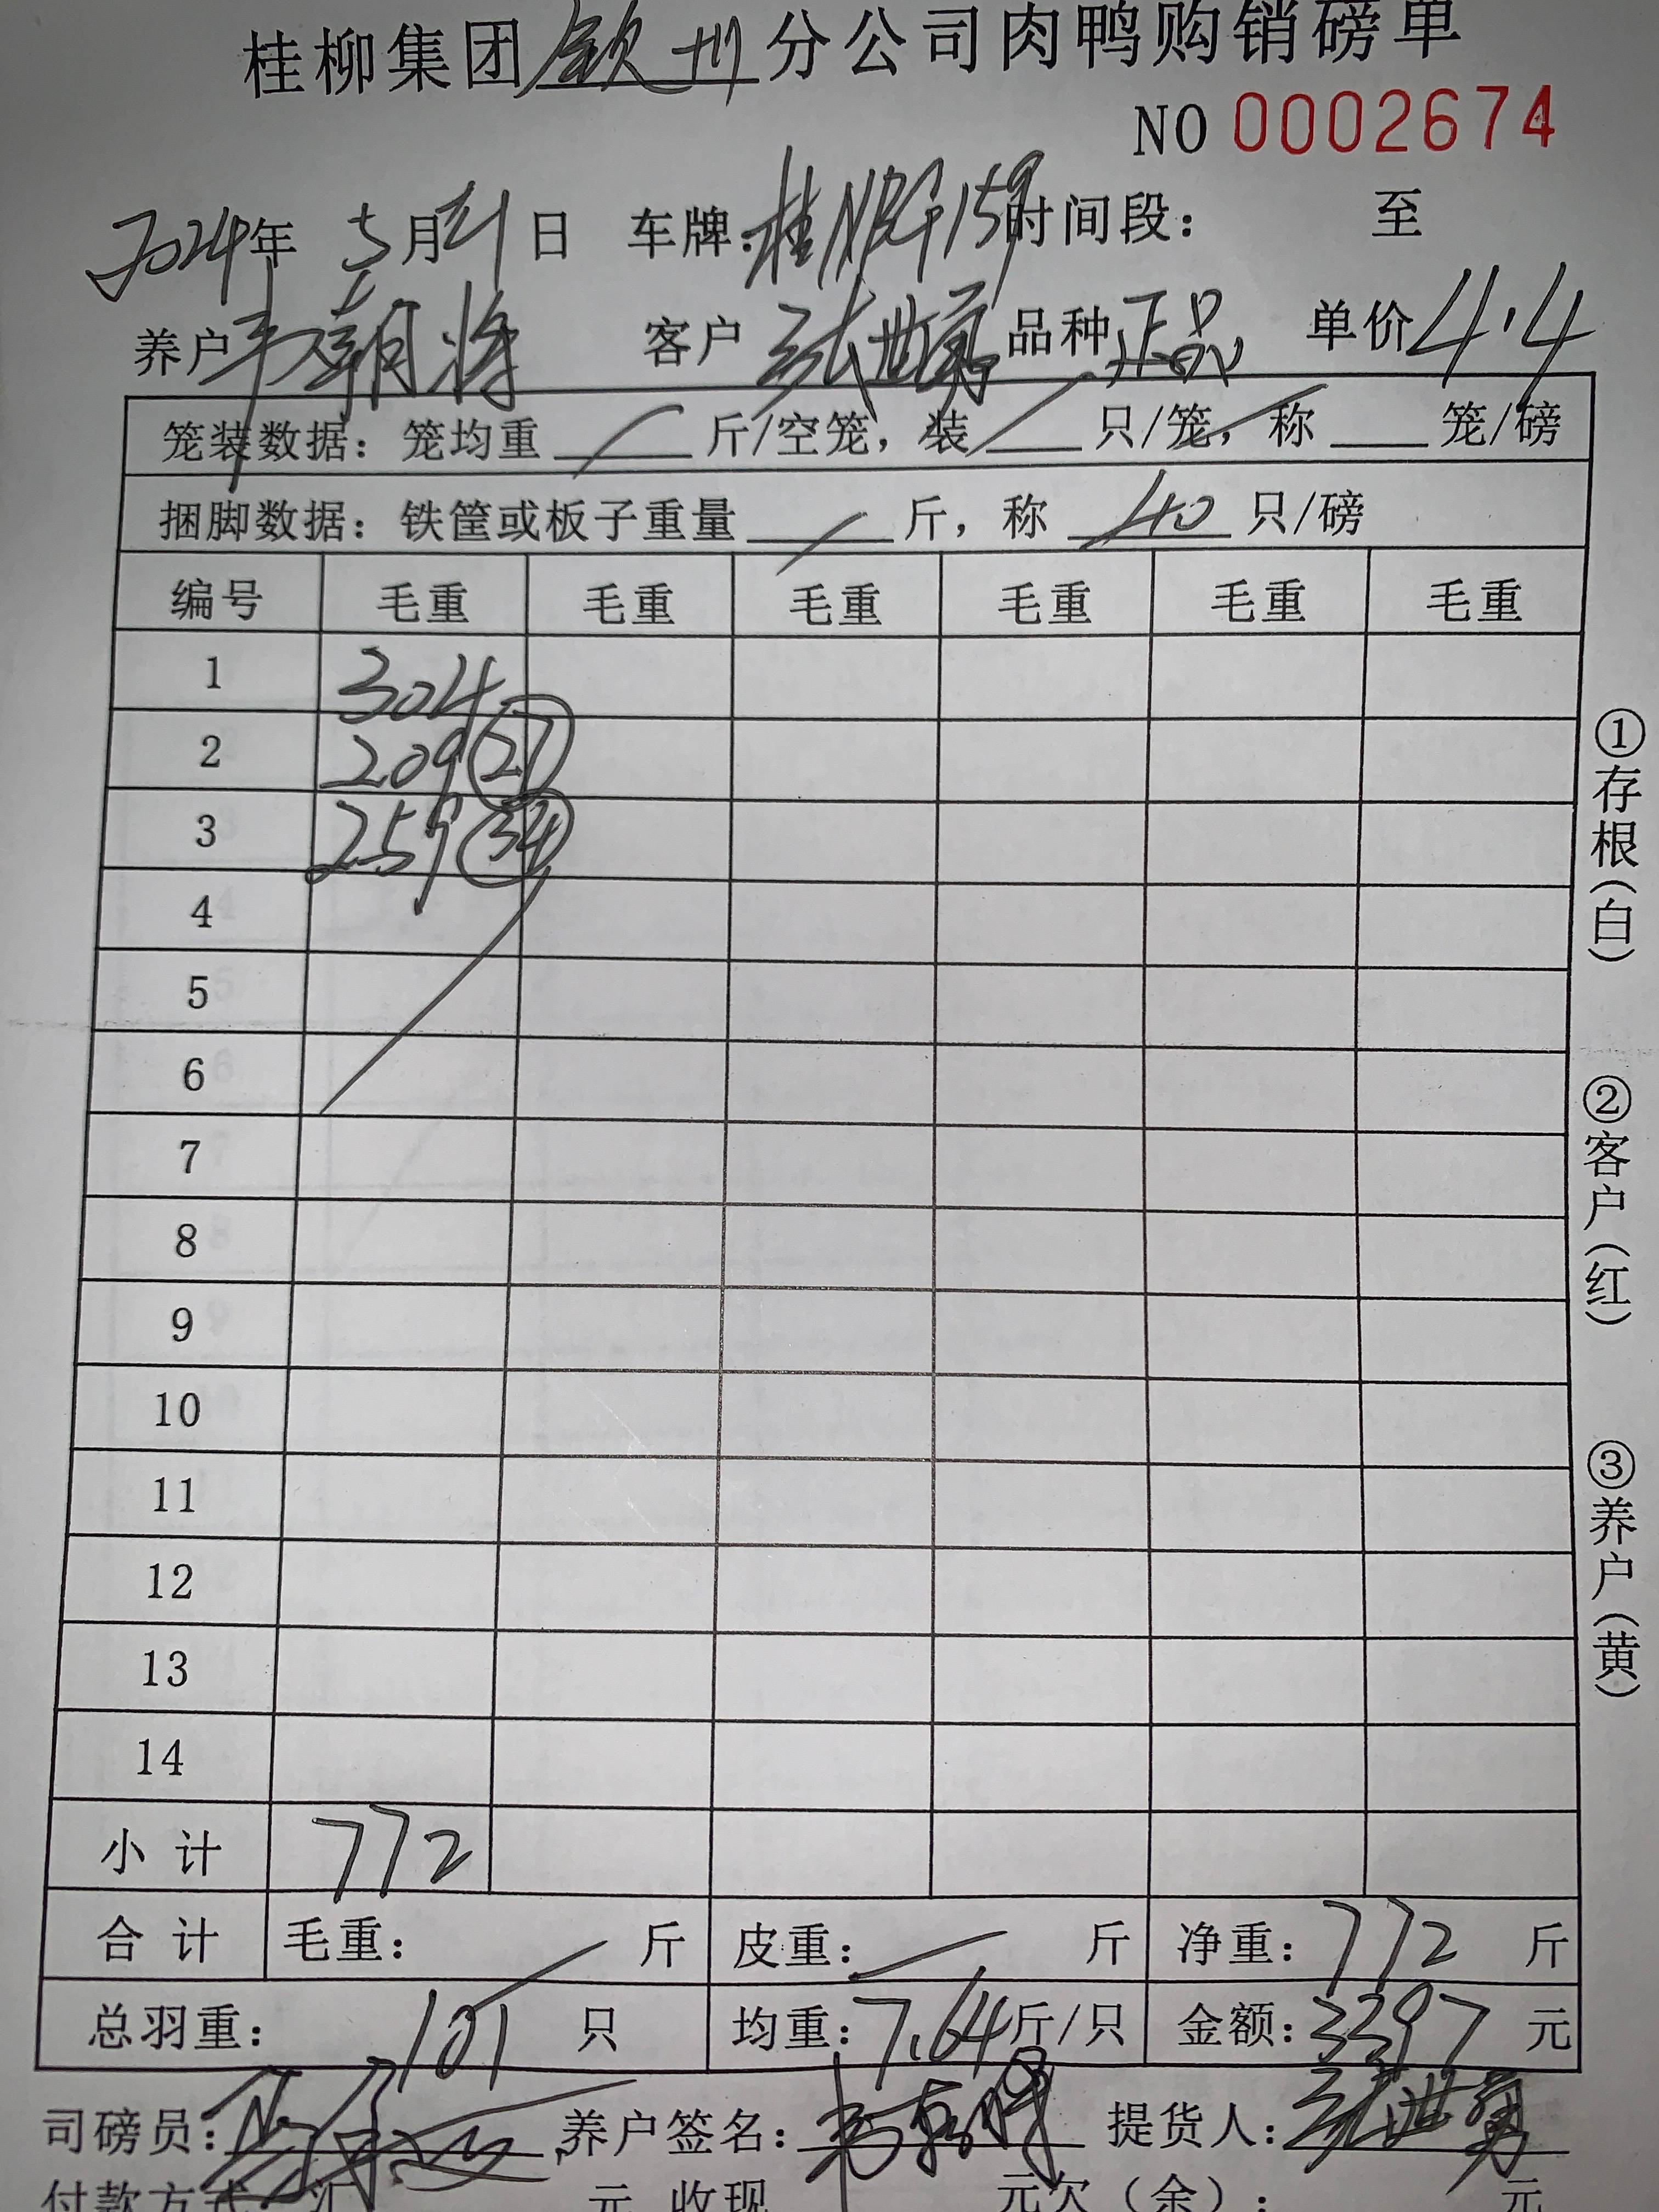 桂柳集团钦州分公司肉鸭购销磅单
NO 0002674
2024年 5月21日 车牌：桂NBG159 时间段： 至
养户 韦朝将 客户 张世勇 品种 正品 单价 4.4
笼装数据：笼均重 斤/空笼，装 只/笼，称 笼/磅
捆脚数据：铁筐或板子重量 斤，称 40 只/磅
编号 毛重 毛重 毛重 毛重 毛重 毛重
1 304
2 209 27
3 259 34
4
5
6
7
8
9
10
11
12
13
14
小计 772
合计 毛重： 斤 皮重： 斤 净重：772 斤
总羽重：101 只 均重：7.64 斤/只 金额：3397 元
司磅员： 养户签名： 提货人：张世勇
付款方式：汇 元 收现 元欠（余）： 元
①存根（白）
②客户（红）
③养户（黄）